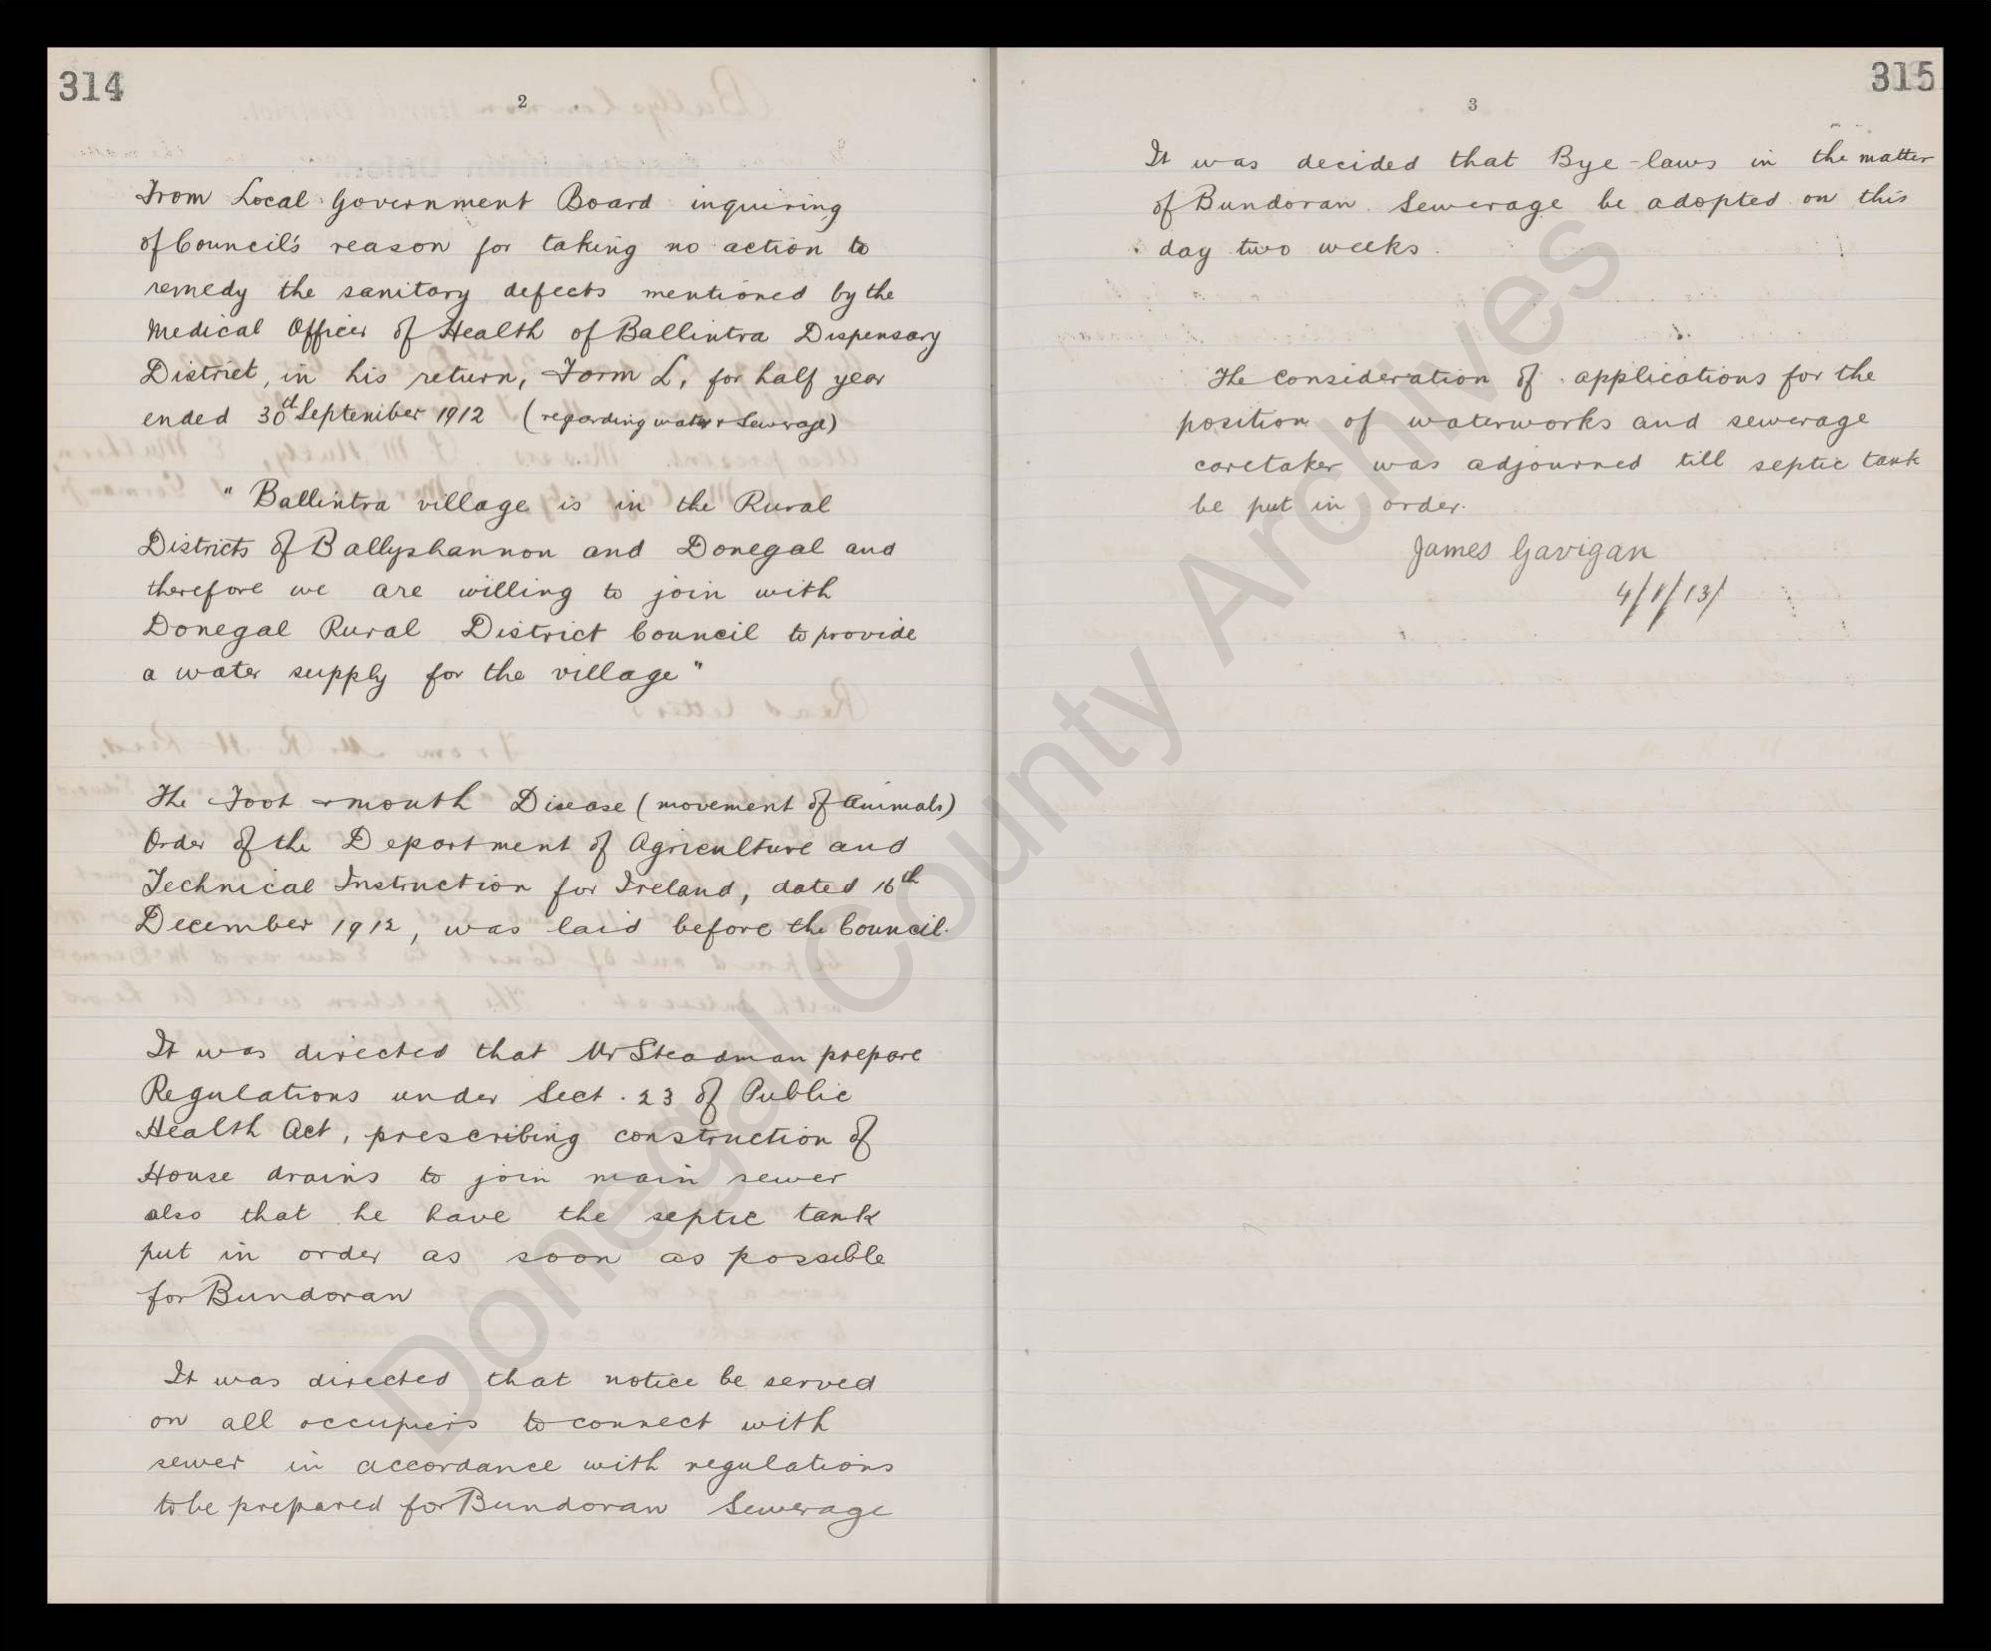 314
2
From Local Government Board inquiring
of Council's reason for taking no action to
remedy the sanitary defects mentioned by the
Medical Officer of Health of Ballintra Dispensary
District, in his return, Form L, for half year
ended 30th September 1912 (regarding water & Sewerage)
"Ballintra village is in the Rural
Districts of Ballyshannon and Donegal and
therefore we are willing to join with
Donegal Rural District Council to provide
a water supply for the village"
The Foot & mouth Disease (movement of Animals)
Order of the Department of Agriculture and
Technical Instruction for Ireland, dated 16th
December 1912, was laid before the Council.
It was directed that Mr Steadman prepare
Regulations under Sect. 23 of Public
Health Act, prescribing construction of
House drains to join main sewer
also that he have the septic tank
put in order as soon as possible
for Bundoran
It was directed that notice be served
on all occupiers to connect with
sewer in accordance with regulations
to be prepared for Bundoran Sewerage
315
3
It was decided that Bye-laws in the matter
of Bundoran Sewerage be adopted on this
day two weeks.
The consideration of applications for the
position of waterworks and sewerage
caretaker was adjourned till septic tank
be put in order.
James Gavigan
4/1/13/
Donegal County Archives